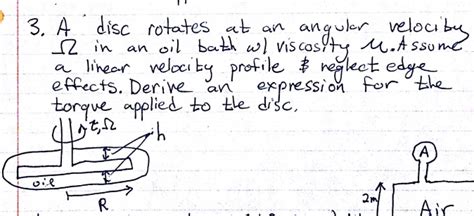 3. A disc rotates at an angular velocity
Ω in an oil bath w/ viscosity μ. Assume
a linear velocity profile & neglect edge
effects. Derive an expression for the
torque applied to the disc.
τ, Ω
h
oil
R
A
2m
Air